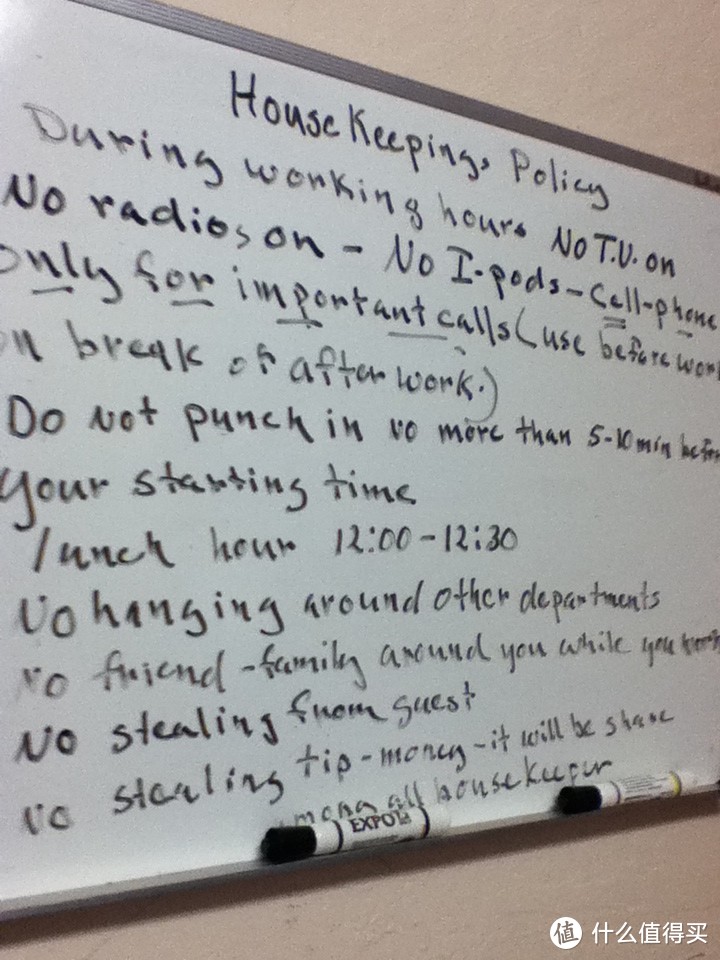 House Keepings Policy
During working hours No T.V. on
No radios on - No I-pods - Cell-phone
only for important calls (use before work
on break or after work.)
Do Not punch in no more than 5-10 min before
your starting time
lunch hour 12:00-12:30
No hanging around other departments
no friend-family around you while you work
No stealing from guest
no stealing tip-money-it will be share
among all housekeeper
EXPO
值 什么值得买